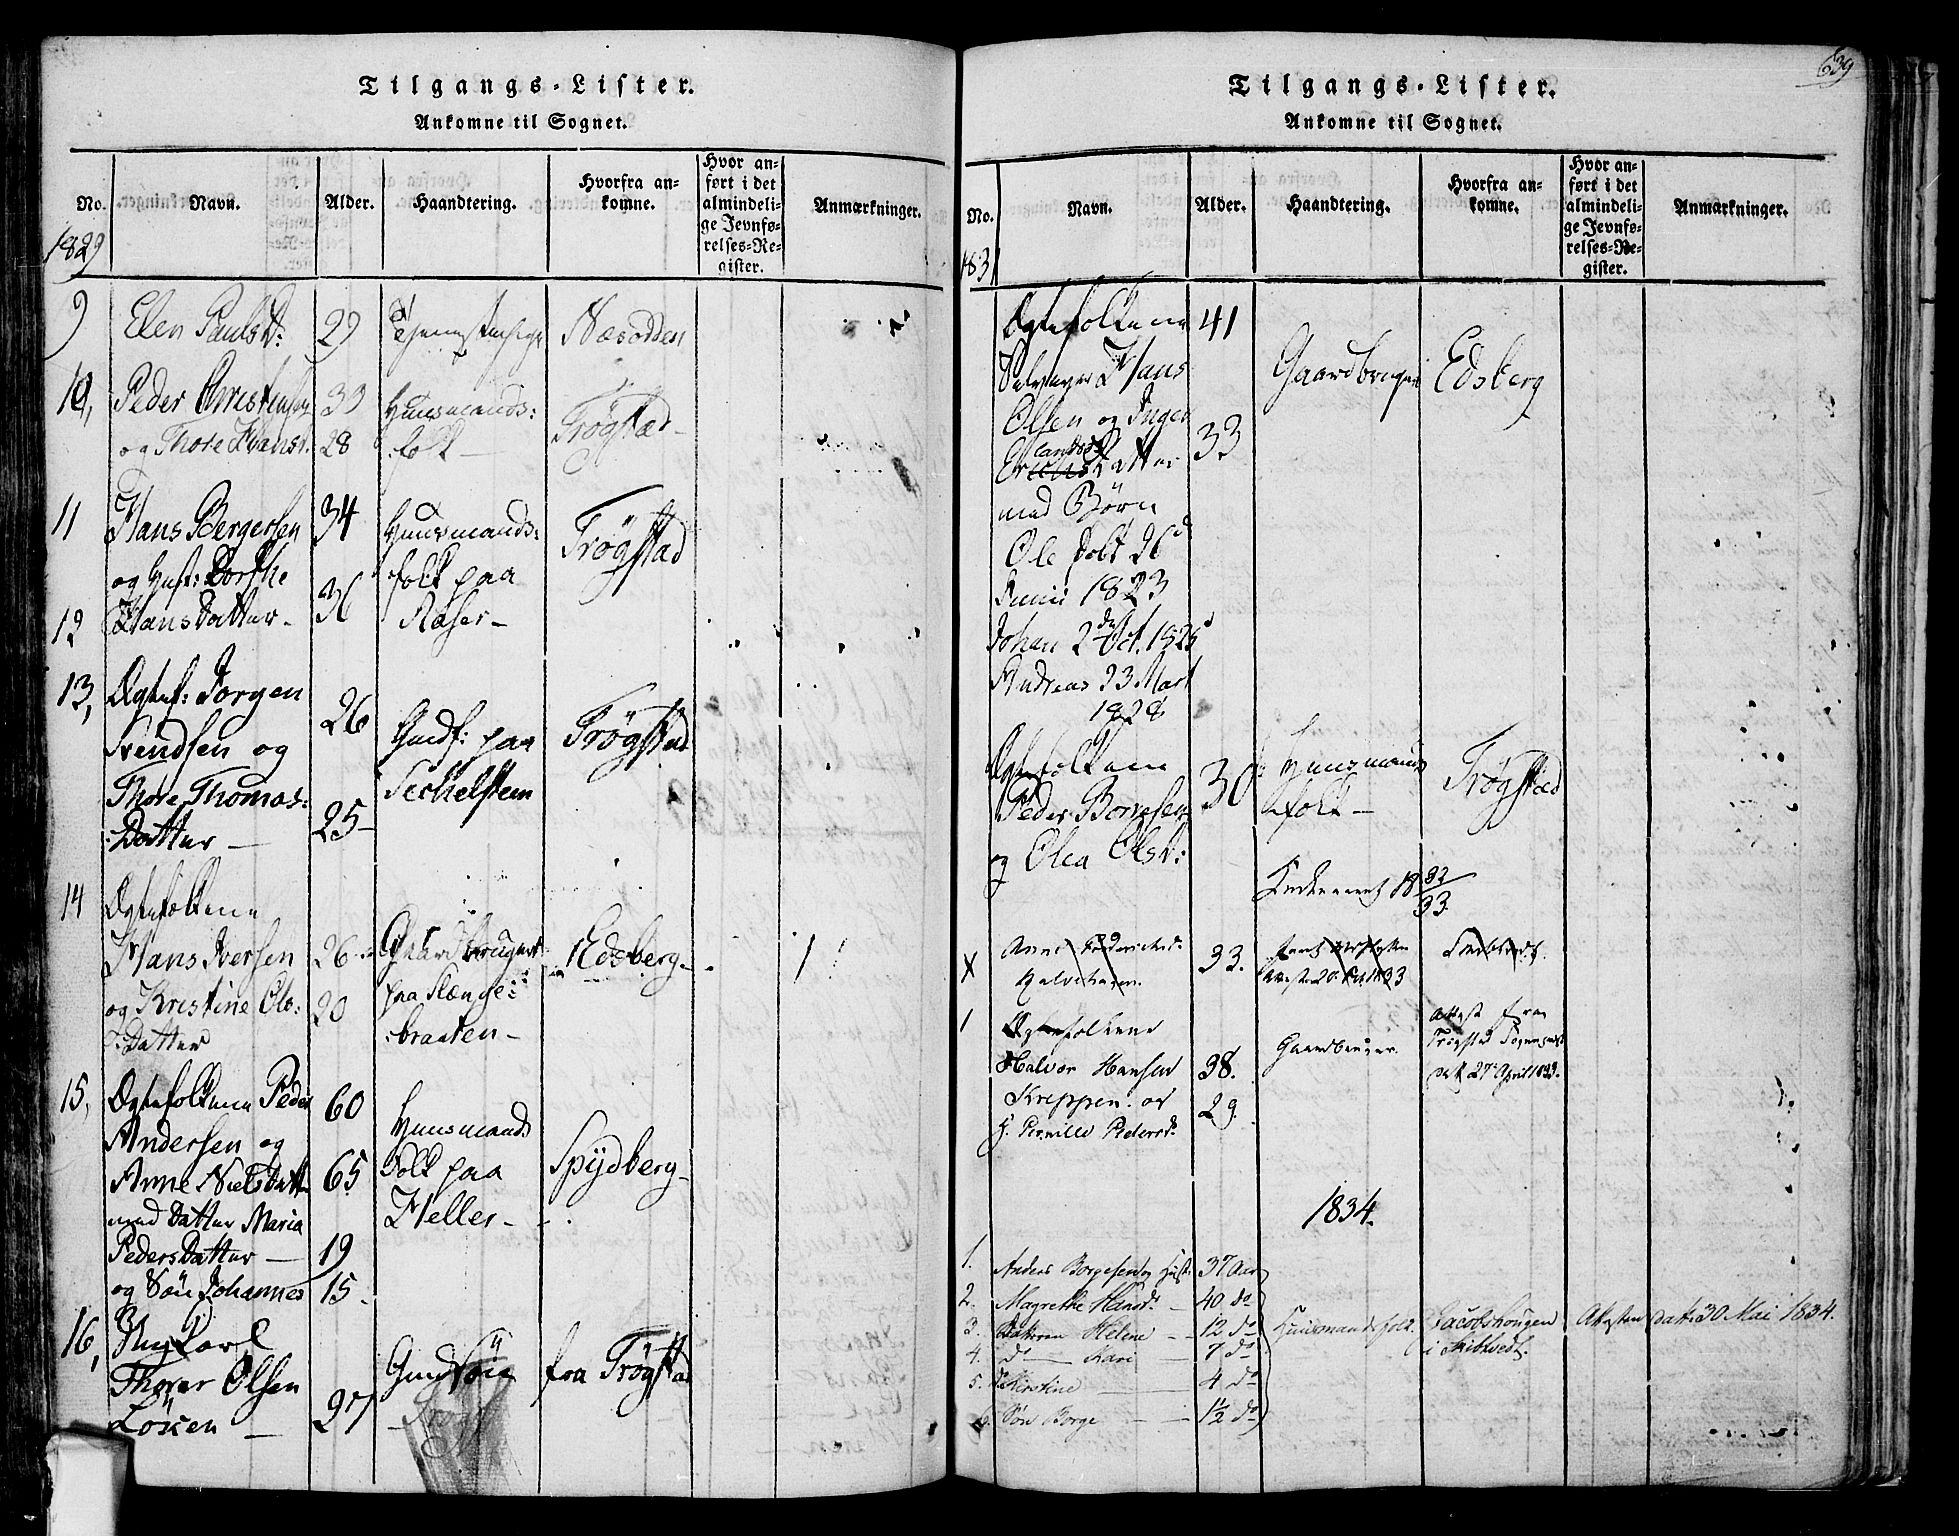 Tilgangs-Lister.
Ankomne til Sognet.
No. Navn. Alder. Haandtering. Hvorfra ankomne. Hvor anført i det almindelige Jevnførelses-Register. Anmærkninger.
1829
9 Elen Paulsd: 29 Næsodden
10, Peder Christensen 33 Huusmands: Trøgstad
og Thore Evensd. 28 folk
11 Hans Bergersen 34 Huusmands: Trøgstad
og Hust: Dorthe folk paa
12 Hansdatter 36 Raser
13, Ægtef: Jørgen 26
Svendsen og Gmdf: paa Trøgstad
Thore Thomas: 25 Seckelsteen
:Datter
14 Ægtefolkene
Hans Iversen 26 Gaardbruger Edsberg
og Kristine Ols: 20 paa Slænge:
:Datter :braaten
15, Ægtefolkene Peder 60
Andersen og Huusmands
Anne Nielsdatt. 65 folk paa Spydberg
med Datter Maria Heller
Pedersdatter 19
og Søn Johannes 15
16, Ungkarl
Thorer Olsen Gmdsøn fra Trøgstad
27
639
Tilgangs-Lister.
Ankomne til Sognet.
No. Navn. Alder. Haandtering. Hvorfra ankomne. Hvor anført i det almindelige Jevnførelses-Register. Anmærkninger.
1831
Ægtefolkene 41
Selveyer Hans Gaardbruger Edsberg
Olsen og Inger
33
datter
med Børn
Ole født 26d
Junii 1823
Johan 2den Oct. 1825
Andreas 23 Mart
1828
Ægtefolkene 30 Huusmands Trøgstad
Peder Borresen folk
og Olea Olsd:
Kirkeaaret 1832/33.
X Anne Frederichsd. 33.
1 Ægtefolkene Gaardbruger. Attest fra
Halvor Hansen 38. Trøgstad Sognepræst
Kreppen og 29. dat. 27de April 1833.
H. Pernille Pedersd.
1834.
1. Anders Borgesen og Hust: 37 Aar
2. Magrethe Hansd. 40 do
3. Datteren Helene 12 do Huusmandsfolk. Jacobshougen Attesten dat. 30 Mai 1834.
4. do Kari 7 do i Skibtvedt.
5. do Kirstine 4 do
6. Søn Borge 1½ do